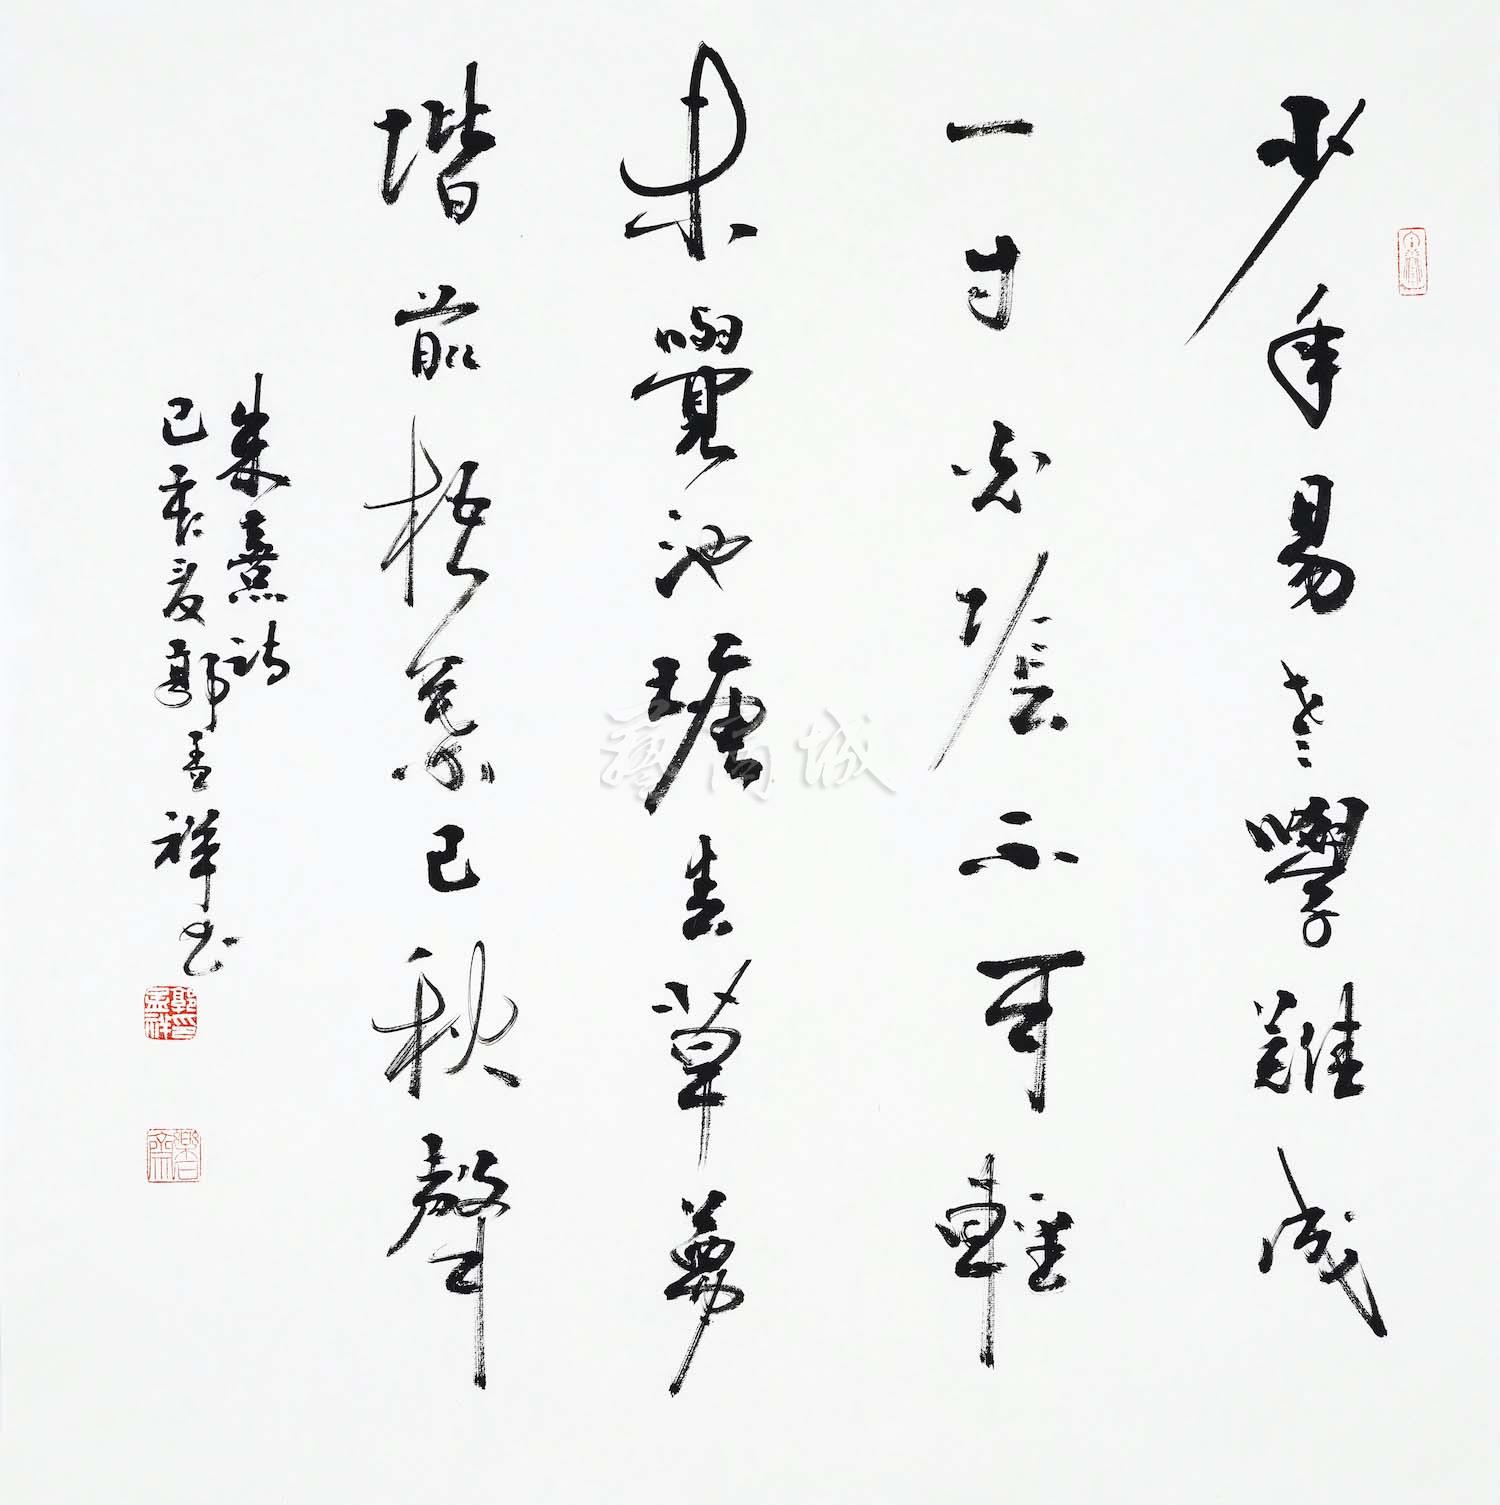 少年易老學難成
一寸光陰不可輕
未覺池塘春草夢
階前梧葉已秋聲
朱熹詩
己亥夏郭孟祥書
郭孟祥印
藝商城